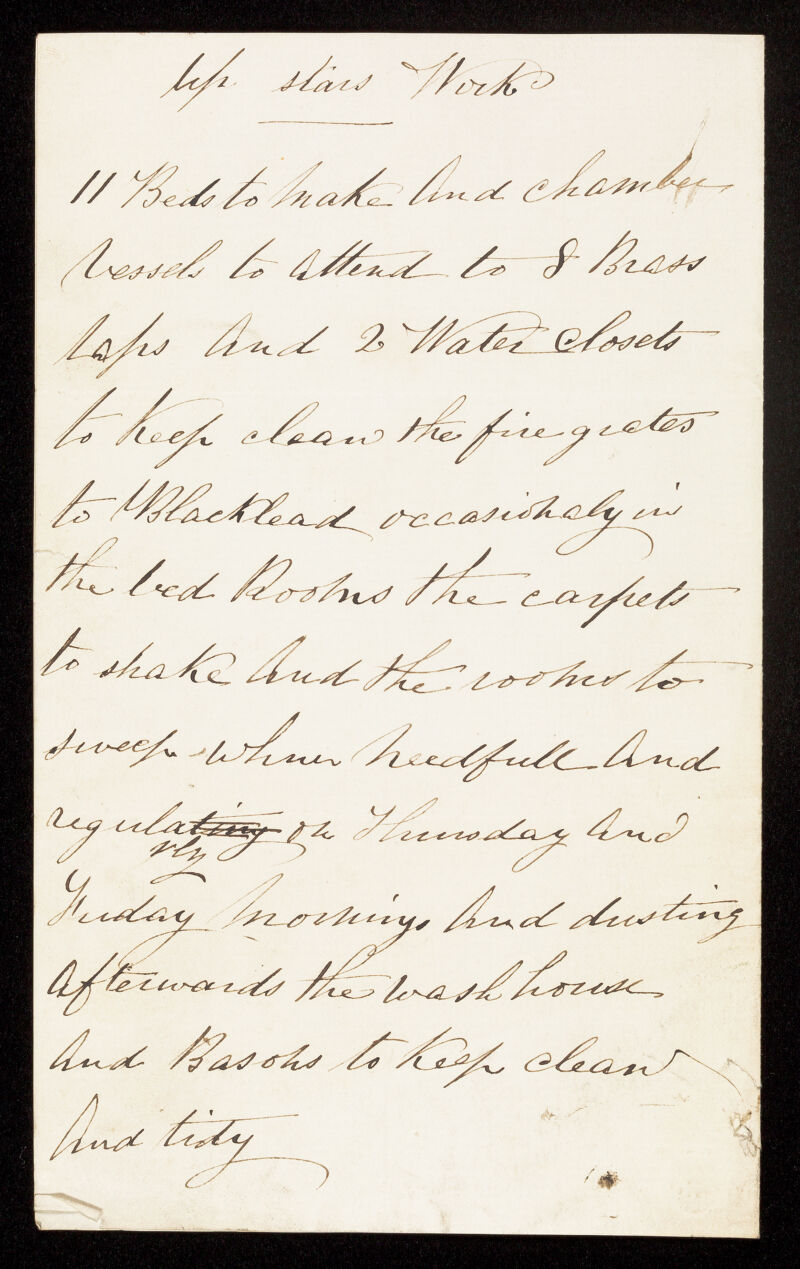 Up stars Work
11 Beds to make And chamber
vessels to attend to 8 Brass
taps And 2 Water closets
to Keep clean the fire grates
to Blacklead occasionaly in
the bed Rooms the carpets
to shake And the rooms to
sweep when needfull And
regulating on Thursday And
rly
Friday mornings And dusting
Afterwards the wash house
And Basons to Keep clean
And tidy